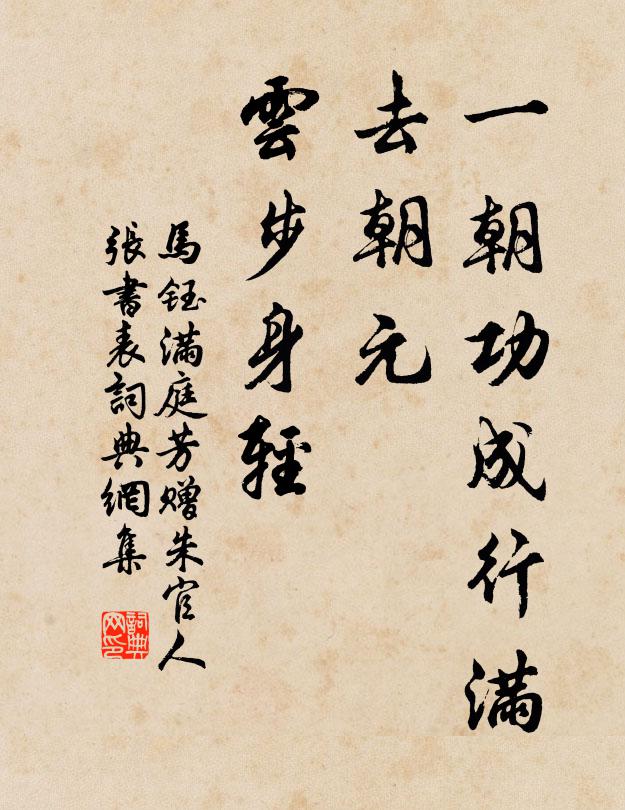 一朝功成行滿
去朝元
雲步身輕
馬鈺滿庭芳赠朱官人
張書表詞典網集
詞典
网印